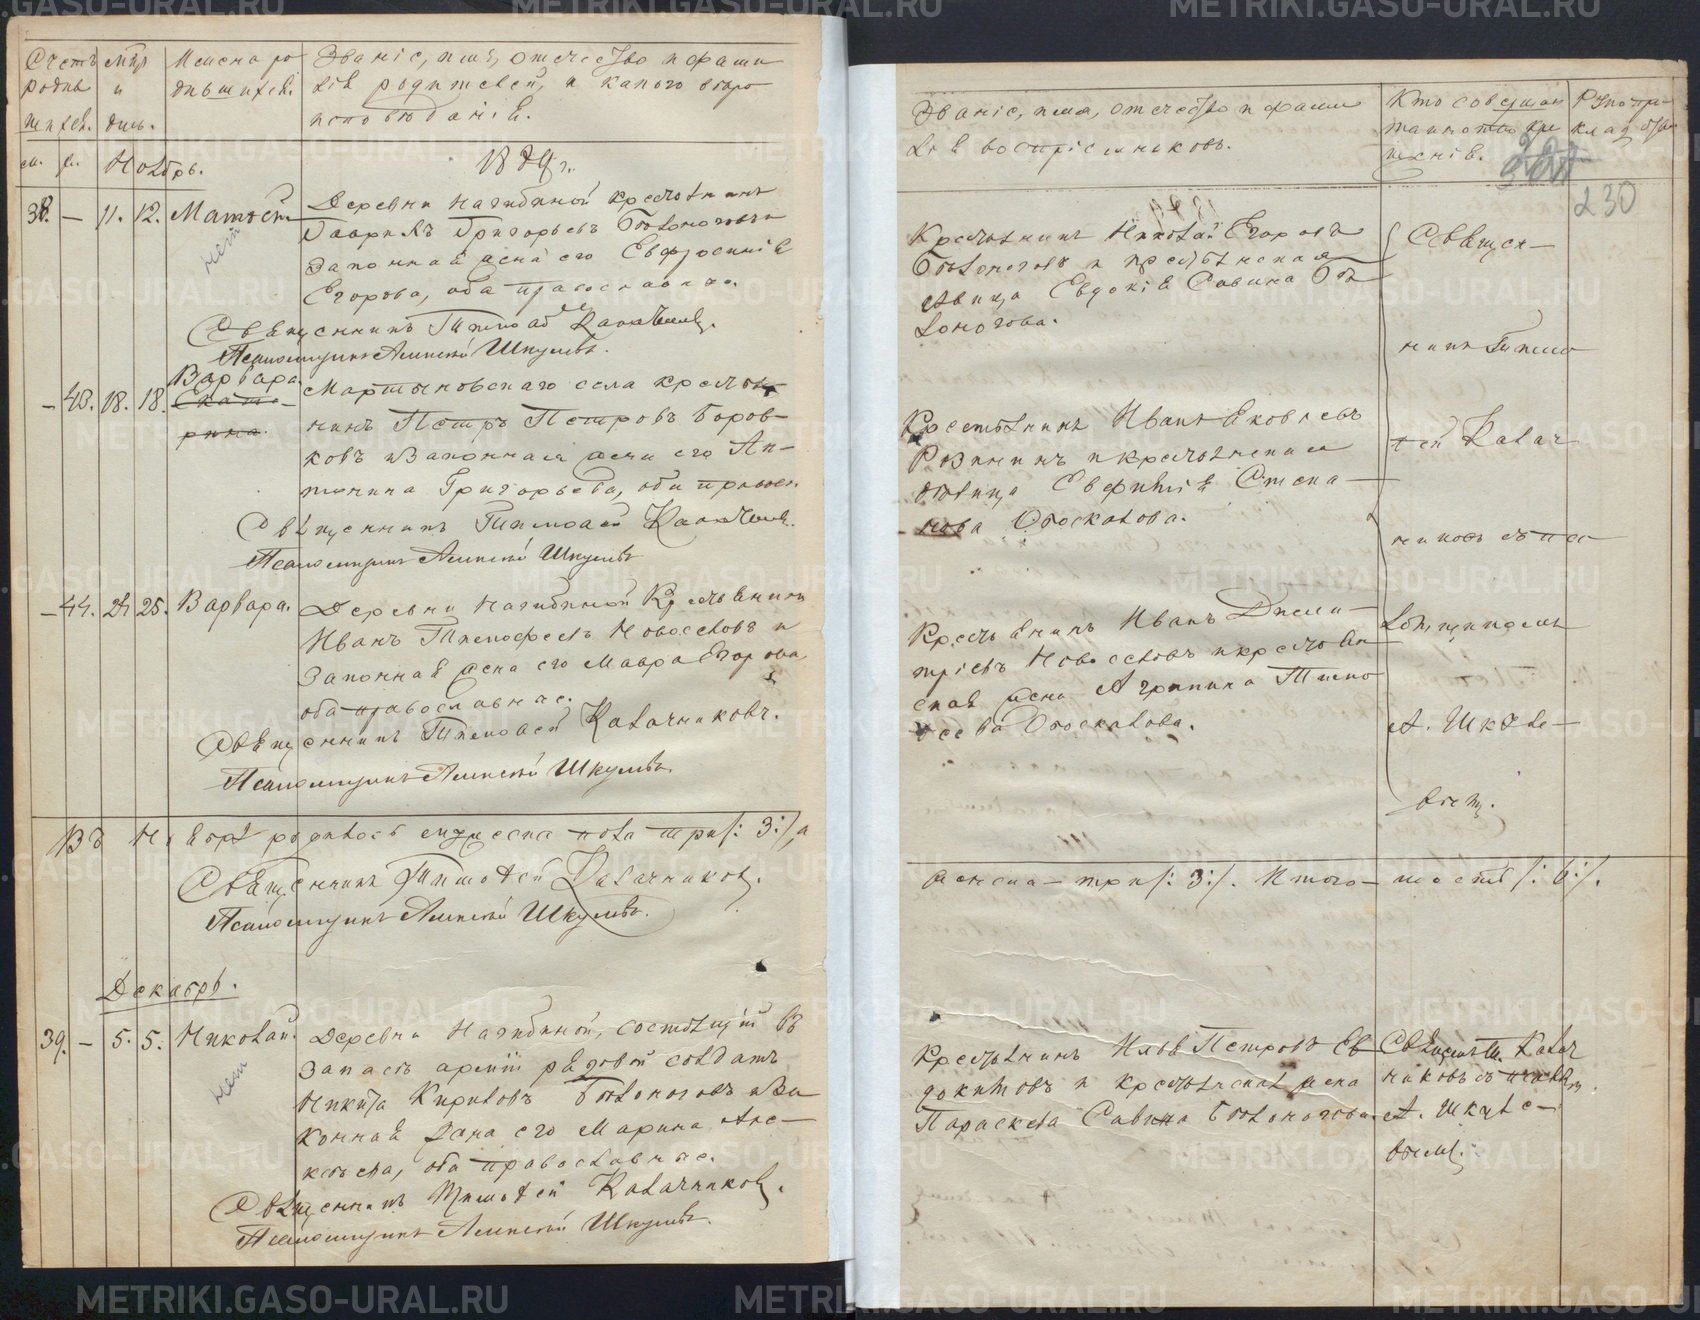 Счетъ
родив
шихся.
м. ж.
Мѣс
и
день.
Имена ро
дившихся.
Званіе, имя, отчество и фами
лія родителей, и какого вѣро
исповѣданія.
Ноябрь.
38. — 11. 12. Матѳей
нет
Деревни Нагибиной крестьянинъ
Гавріилъ Григорьевъ Бѣлоноговъ и
законная жена его Евфросинія
Егорова, оба православные.
Священникъ Тимоѳей
Псаломщикъ Алексѣй Шкулевъ.
— 43. 18. 18. Варвара.
Екате-
рина.
Мартыновскаго села крестья-
нинъ Петръ Петровъ Боров-
ковъ и законная жена его Ан-
тонина Григорьева, оба правосл
Священникъ Тимоѳей
Псаломщикъ Алексѣй Шкулевъ
— 44. 24 25. Варвара.
Деревни Нагибиной Крестьянинъ
Иванъ Тимоѳеевъ Новоселовъ и
законная жена его Мавра Егорова,
оба православные.
Священникъ Тимоѳей Калачниковъ.
Псаломщикъ Алексѣй Шкулевъ.
Въ Ноябрѣ родилось мужеска пола три /: 3 :/, а
Священникъ Тимоѳей Калачниковъ.
Псаломщикъ Алексѣй Шкулевъ.
Декабрь.
39. — 5. 5. Николай.
нет
Деревни Нагибиной, состоящій въ
запасѣ арміи рядовой солдатъ
Никита Кириловъ Бѣлоноговъ и за
конная жена его Марина Але-
ксѣева, оба православные.
Священникъ Тимоѳей Калачниковъ.
Псаломщикъ Алексѣй Шкулевъ.
Званіе, имя, отчество и фами
лія воспріемниковъ.
Кто совершал
таинство кре
щенія.
230
Крестьянинъ Николай Егоровъ
Бѣлоноговъ и крестьянская
дѣвица Евдокія Савина Бѣ
лоногова.
Крестьянинъ Иванъ Яковлевъ
и крестьянская
дѣвица Евфимія Степа-
нова Обоскалова.
Крестьянинъ Иванъ Дими-
тріевъ Новоселовъ и крестьян
ская жена Агрипина Тимо
ѳеева Обоскалова.
Священ-
никъ Тимо
ѳей Калач
никовъ съ пса-
ломщикомъ
А. Шкуле-
вымъ.
женска — три /: 3 :/. Итого — шесть /: 6 :/.
Крестьянинъ Илья Петровъ Ев
докимовъ и крестьянская жена
Параскева Савина Бѣлоногова.
Священ. Т. Калач
никовъ съ псалом.
А. Шкуле-
вымъ.
METRIKI.GASO-URAL.RU